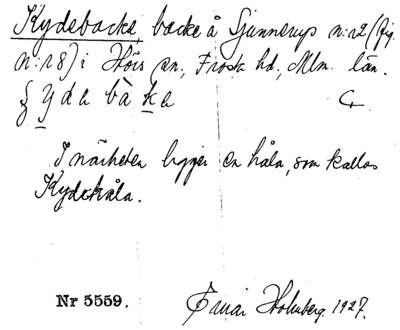 Kydebacke, backe å Sjunnerup n:r 2 (fig.
n:r 8) i Hörs sn., Frosta hd, Mlm. län.
ydabàka C.
I närheten ligger en håla, som kallas
Kydehåla.
Nr 5559. Einar Holmberg. 1927.